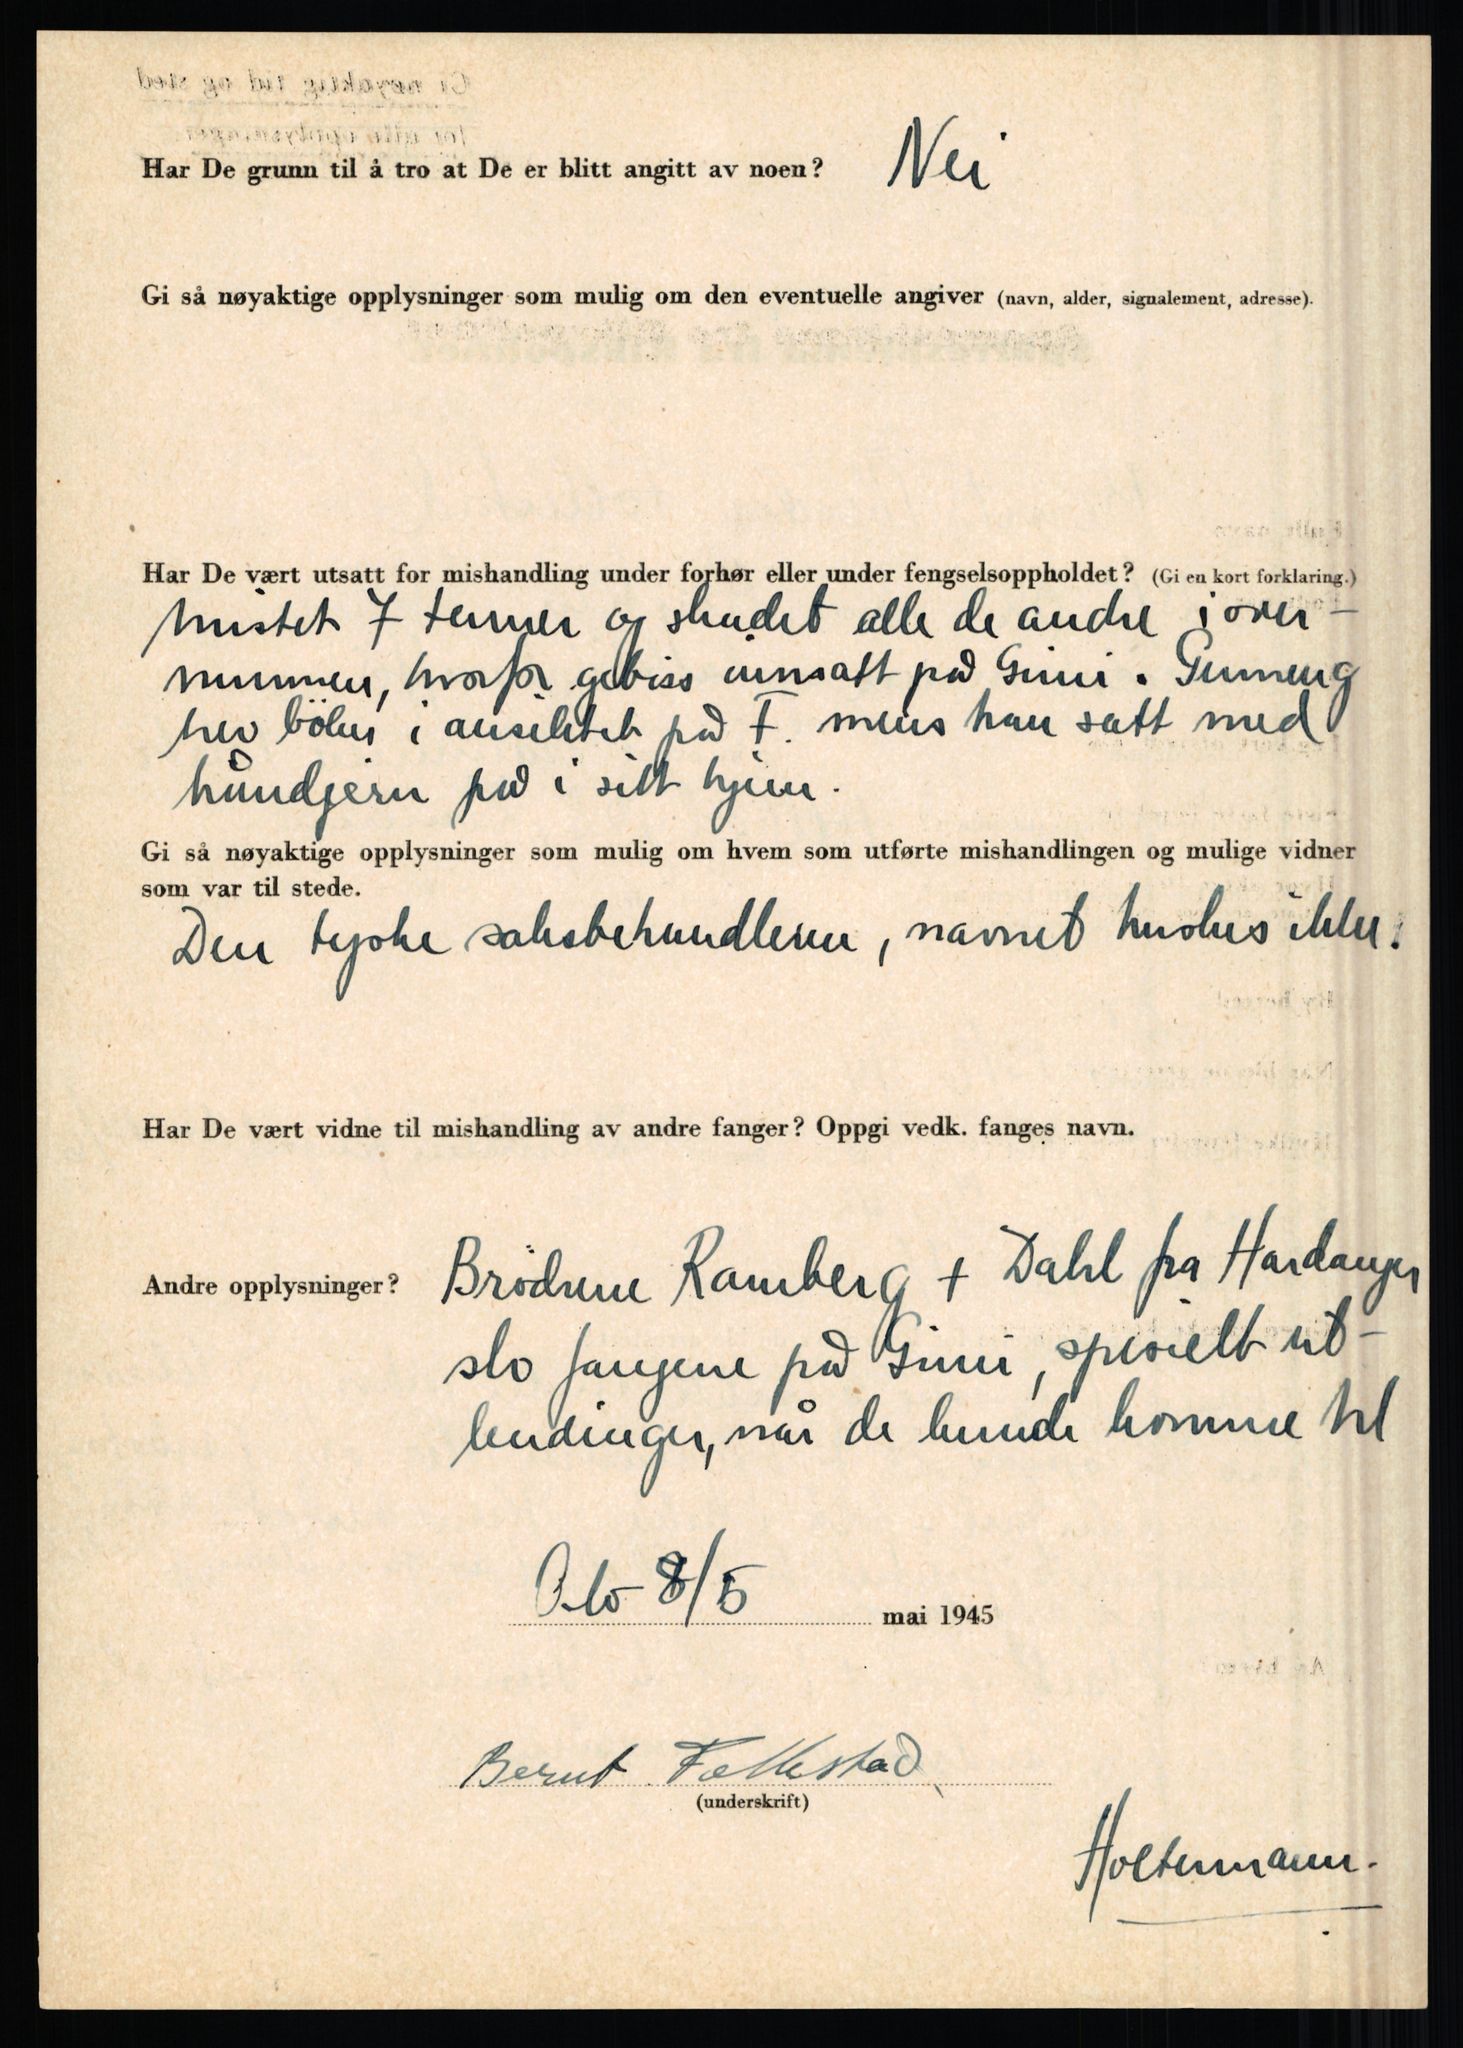 Har De grunn til å tro at De er blitt angitt av noen? Nei
Gi så nøyaktige opplysninger som mulig om den eventuelle angiver (navn, alder, signalement, adresse).
Har De vært utsatt for mishandling under forhør eller under fengselsoppholdet? (Gi en kort forklaring.)
Mistet 7 tenner og skadet alle de andre i over-
munnen, hvorfor gebiss innsatt på Grini.
i ansiktet på F. mens han satt med
håndjern på i sitt hjem.
Gi så nøyaktige opplysninger som mulig om hvem som utførte mishandlingen og mulige vidner
som var til stede.
Den tyske saksbehandleren, navnet huskes ikke.
Har De vært vidne til mishandling av andre fanger? Oppgi vedk. fanges navn.
Andre opplysninger? Brödrene Ramberg + Dahl fra Hardanger
slo fangene på Grini, spesielt ut-
lendinger, når de kunde komme til
Oslo 8/5 mai 1945
Bernt Folkestad
(underskrift)
Holtermann.